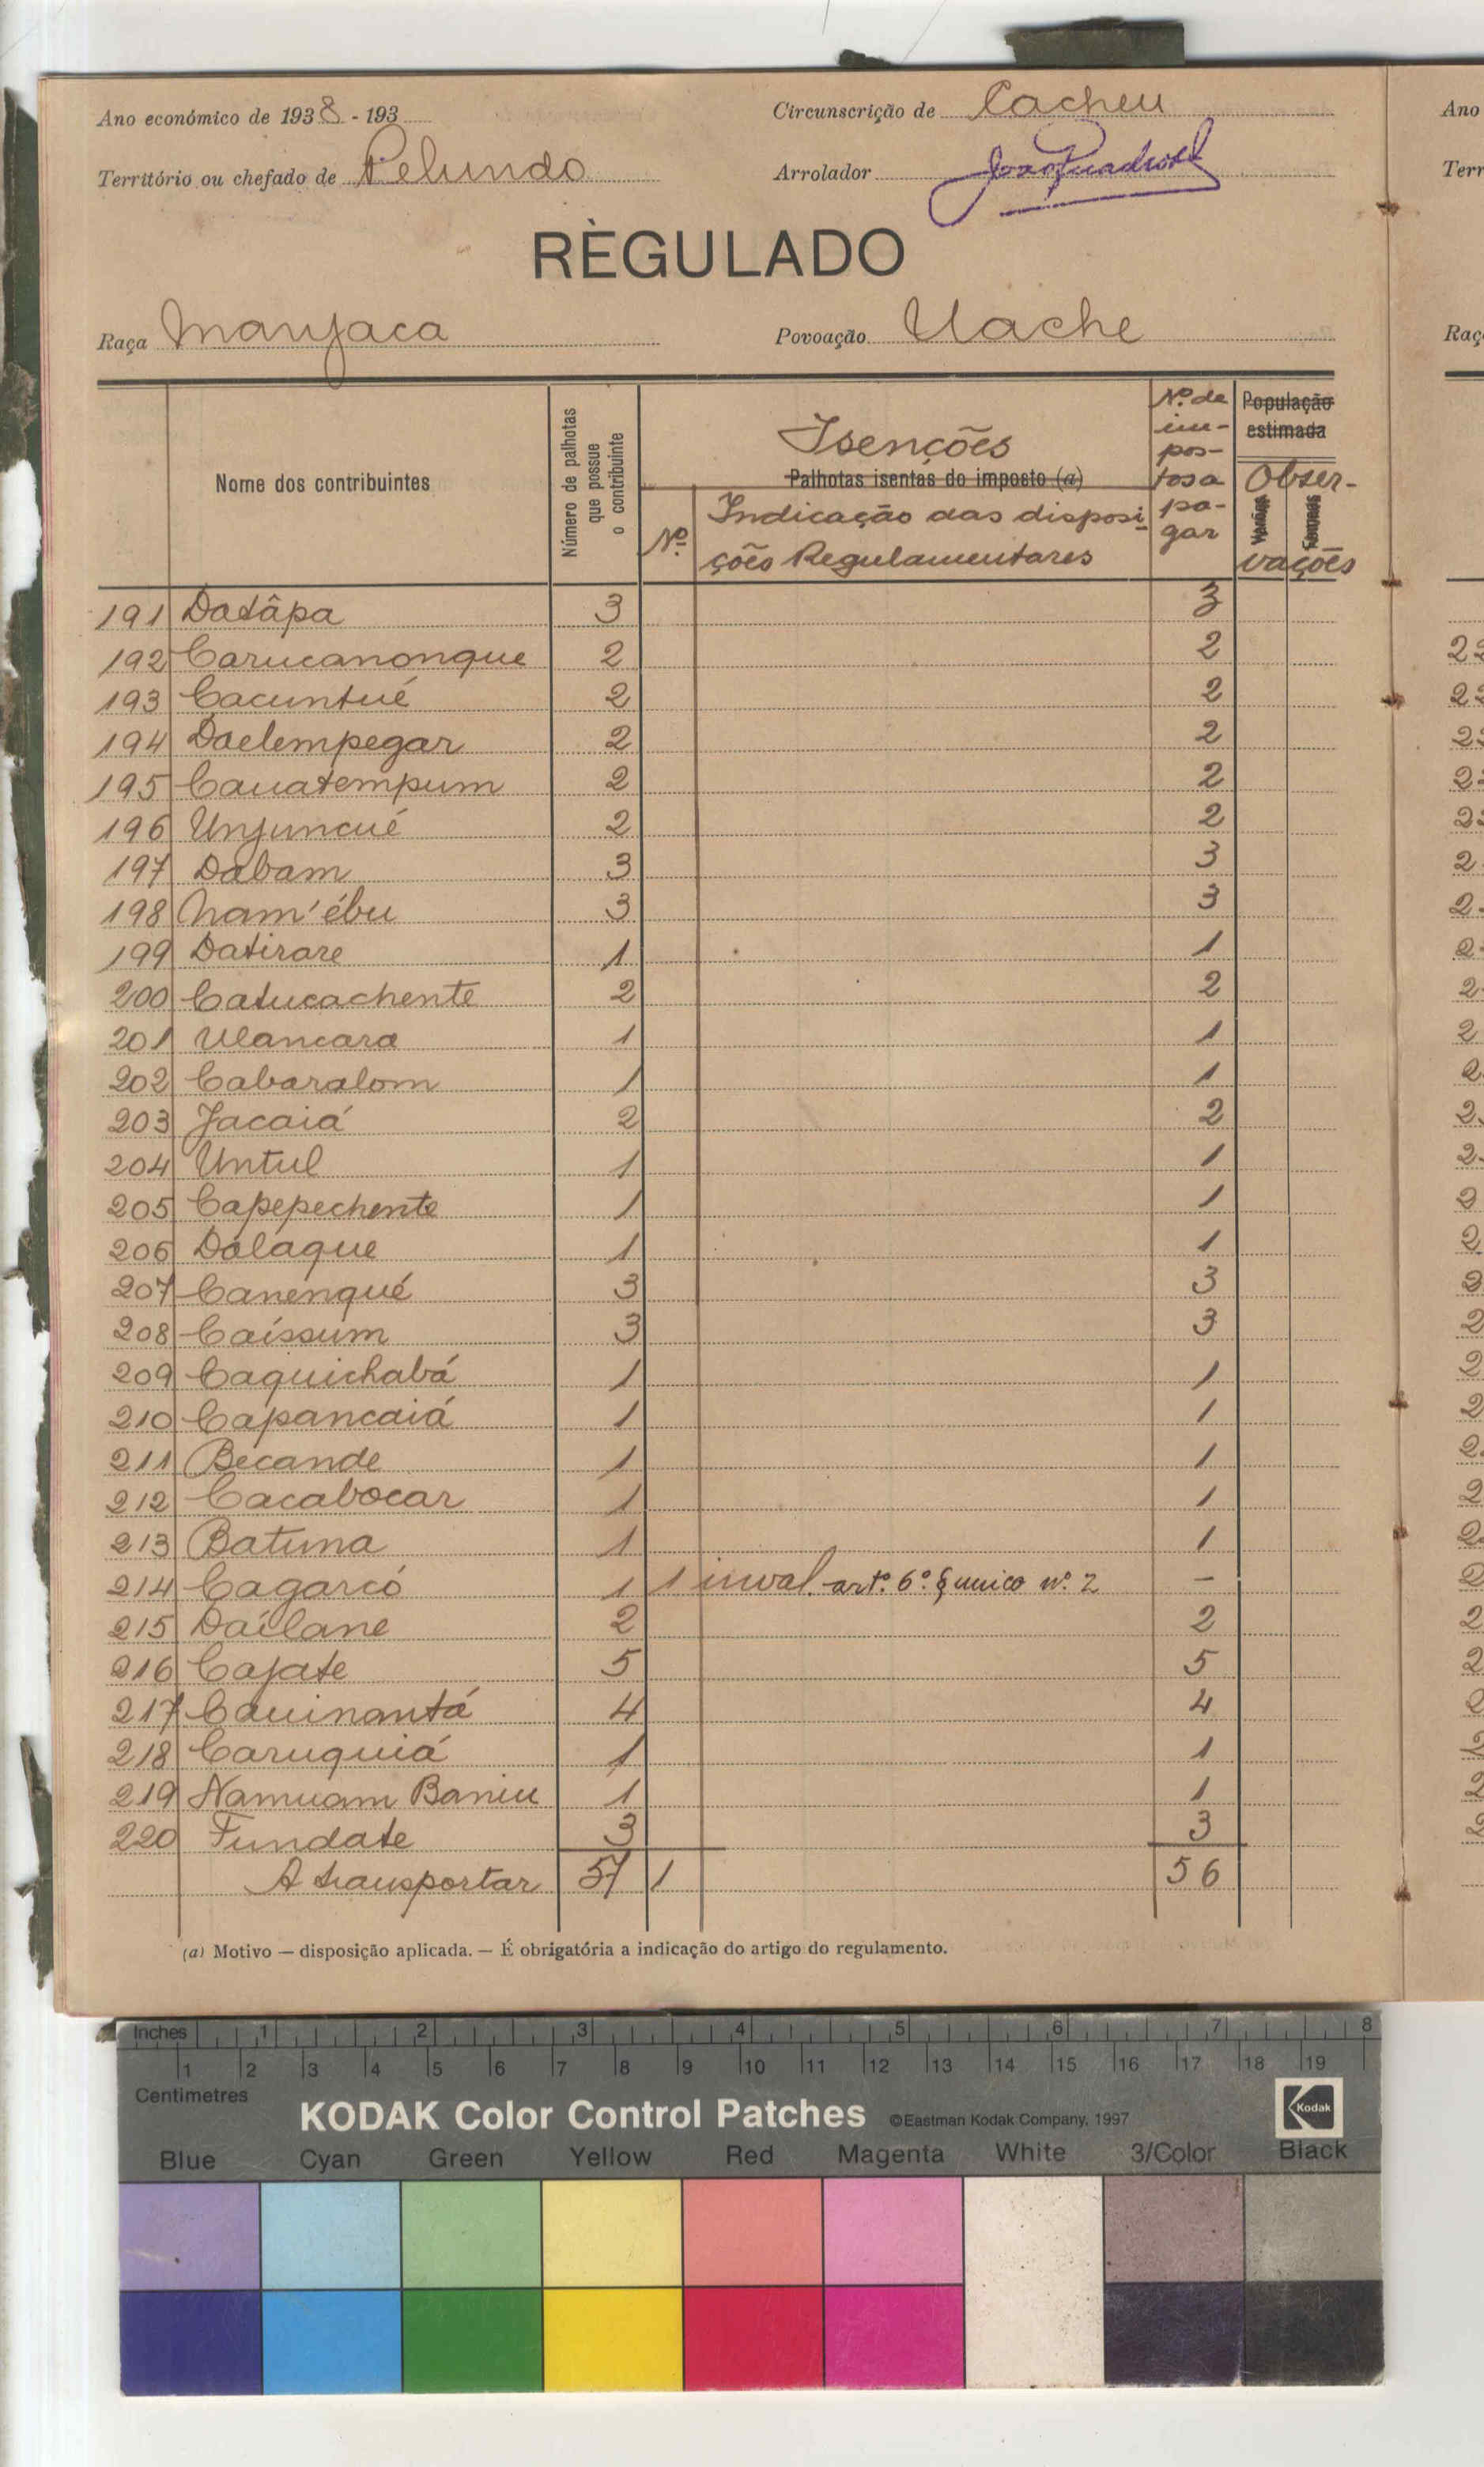 Ano económico de 1938 - 193
Circunscrição de Cacheu
Território ou chefado de Pelundo
Arrolador
RÈGULADO
Raça Manjaca
Povoação Uache
Nome dos contribuintes
Número de palhotas que possue o contribuinte
Isenções
Palhotas isentas do imposto (a)
Nº
Indicação das disposi-
ções Regulamentares
Nº de
im-
pos-
tos a
pa-
gar
População
estimada
Obser-
vações
191 Datâpa 3 3
192 Carucanonque 2 2
193 Cacuntué 2 2
194 Daelempegar 2 2
195 Cauatempum 2 2
196 Unjuncué 2 2
197 Dabam 3 3
198 Nam'ébu 3 3
199 Datirare 1 1
200 Catucachente 2 2
201 Ulancara 1 1
202 Cabaralom 1 1
203 Jacaiá 2 2
204 Untul 1 1
205 Capepechente 1 1
206 Dálaque 1 1
207 Canenqué 3 3
208 Caíssum 3 3
209 Caquichabá 1 1
210 Capancaiá 1 1
211 Becande 1 1
212 Cacabocar 1 1
213 Batuna 1 1
214 Cagarcó 1 1 inval. artº. 6º. § unico nº. 2 —
215 Daílane 2 2
216 Cajate 5 5
217 Cauinantá 4 4
218 Caruquiá 1 1
219 Namuam Baniu 1 1
220 Fundate 3 3
A transportar 57 1 56
(a) Motivo — disposição aplicada. — É obrigatória a indicação do artigo do regulamento.
Ano
Terr
Raç
Inches 1 2 3 4 5 6 7 8
1 2 3 4 5 6 7 8 9 10 11 12 13 14 15 16 17 18 19
Centimetres
KODAK Color Control Patches ©Eastman Kodak Company, 1997 Kodak
Blue Cyan Green Yellow Red Magenta White 3/Color Black